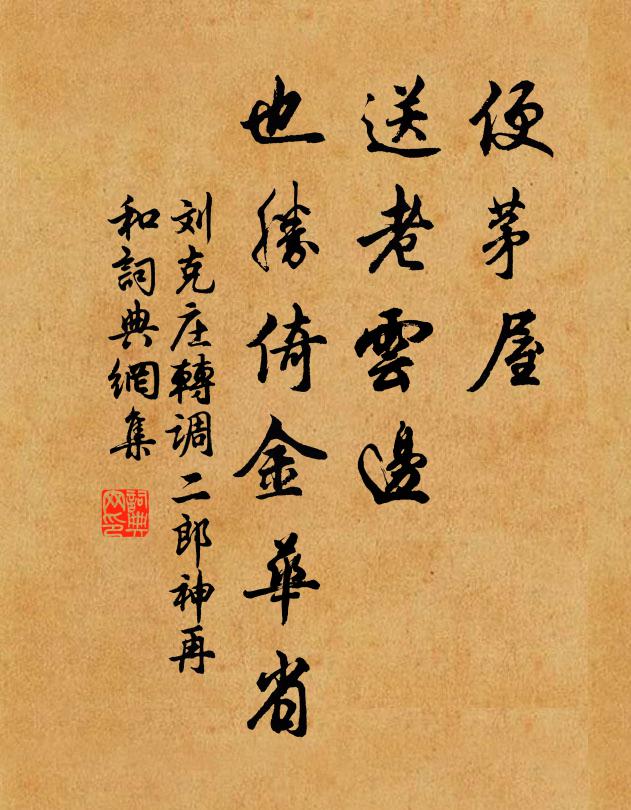 便茅屋
送老雲邊
也勝倚金華省
刘克庄轉调二郎神再
和詞典網集
詞典网印